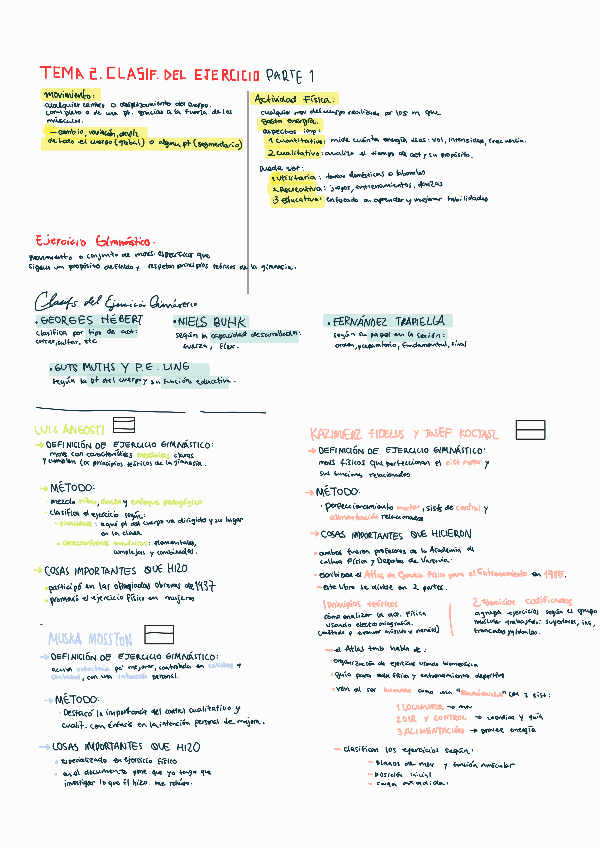 TEMA 2. CLASIF. DEL EJERCICIO PARTE 1
Movimiento:
cualquier cambio o desplazamiento del cuerpo.
completo o de una pt. gracias a la fuerza de los
músculos.
- cambio, variación, despl.
de todo el cuerpo (global) o alguna pt (segmentario)
Actividad Física:
cualquier mov del cuerpo realizado por los m. que
gasta energía.
aspectos imp:
1 cuantitativo: mide cuánta energía usas: vol, intensidad, frecuencia.
2 cualitativo: analiza el tiempo de act y su propósito.
Puede ser:
1 utilitaria: tareas domésticas o laborales
2 Recreativa: juegos, entrenamientos, danzas
3 educativa: enfocada en aprender y mejorar habilidades
Ejercicio Gimnástico.
Movimiento o conjunto de movs específicos que
siguen un propósito definido y respetan principios teóricos de la gimnasia.
Clasifs del Ejercicio Gimnástico
• GEORGES HÉBERT
clasifica por tipo de act:
correr, saltar, etc
• NIELS BUHK
según la capacidad desarrollada:
fuerza, flex.
• FERNÁNDEZ TRAPIELLA
según su papel en la sesión:
orden, preparatorio, fundamental, final
• GUTS MUTHS Y P.E. LING
según la pt del cuerpo y su función educativa.
LUIS AGOSTI
→ DEFINICIÓN DE EJERCICIO GIMNÁSTICO:
movs con características mecánicas claras
y cumplen los principios teóricos de la gimnasia.
→ MÉTODO:
- mezcla ritmo, danza y enfoque pedagógico
- clasifica el ejercicio según:
- finalidad: a qué pt del cuerpo va dirigido y su lugar
en la clase
- características anatómicas: elementales,
complejas y combinadas.
→ COSAS IMPORTANTES QUE HIZO
- participó en las olimpiadas obreras de 1937
- promovió el ejercicio físico en mujeres
MUSKA MOSSTON
→ DEFINICIÓN DE EJERCICIO GIMNÁSTICO:
acción voluntaria pa' mejorar, controlada en calidad y
cantidad, con una intención personal.
→ MÉTODO:
- Destacó la importancia del control cualitativo y
cuantif. con énfasis en la intención personal de mejora.
→ COSAS IMPORTANTES QUE HIZO
- especializado en Ejercicio Físico
- en el documento pone que yo tengo que
investigar lo que él hizo. me rehúso.
KAZIMIERZ FIDELUS Y JOSEF KOCJASZ
→ DEFINICIÓN DE EJERCICIO GIMNÁSTICO:
movs físicos que perfeccionan el sist motor y
sus funciones relacionadas
→ MÉTODO:
- perfeccionamiento motor, sists de control y
alimentación relacionados
→ COSAS IMPORTANTES QUE HICIERON
- ambos fueron profesores de la Academia de
Cultura Física y Deportes de Varsovia.
- escribieron el Atlas de Ejercicios Físicos para el Entrenamiento en 1985.
- este libro se divide en 2 partes.
1 Principios teóricos
cómo analizar la act. física
usando electromiografía.
2 Ejercicios codificados
agrupa ejercicios según el grupo
muscular trabajado: superiores, inf,
tronco
- el Atlas tmb habla de:
- organización de ejercicios usando biomecánica
- guía para edu física y entrenamiento deportivo
- ven al ser humano como una "BIOMÁQUINA" con 3 sist:
1 LOCOMOTOR → mov
2 DIR Y CONTROL → coordina y guía
3 ALIMENTACIÓN → provee energía
- clasifican los ejercicios según:
- planos de mov y función muscular
- posición inicial
- carga añadida.